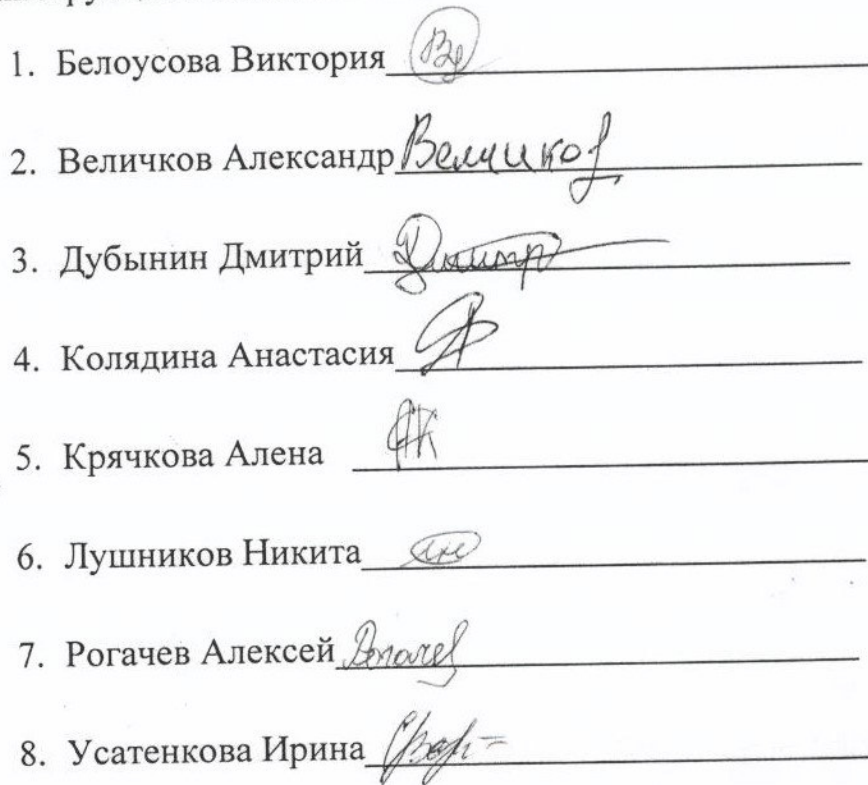 1. Белоусова Виктория
2. Величков Александр Величков
3. Дубынин Дмитрий Дмитр
4. Колядина Анастасия
5. Крячкова Алена
6. Лушников Никита
7. Рогачев Алексей
8. Усатенкова Ирина